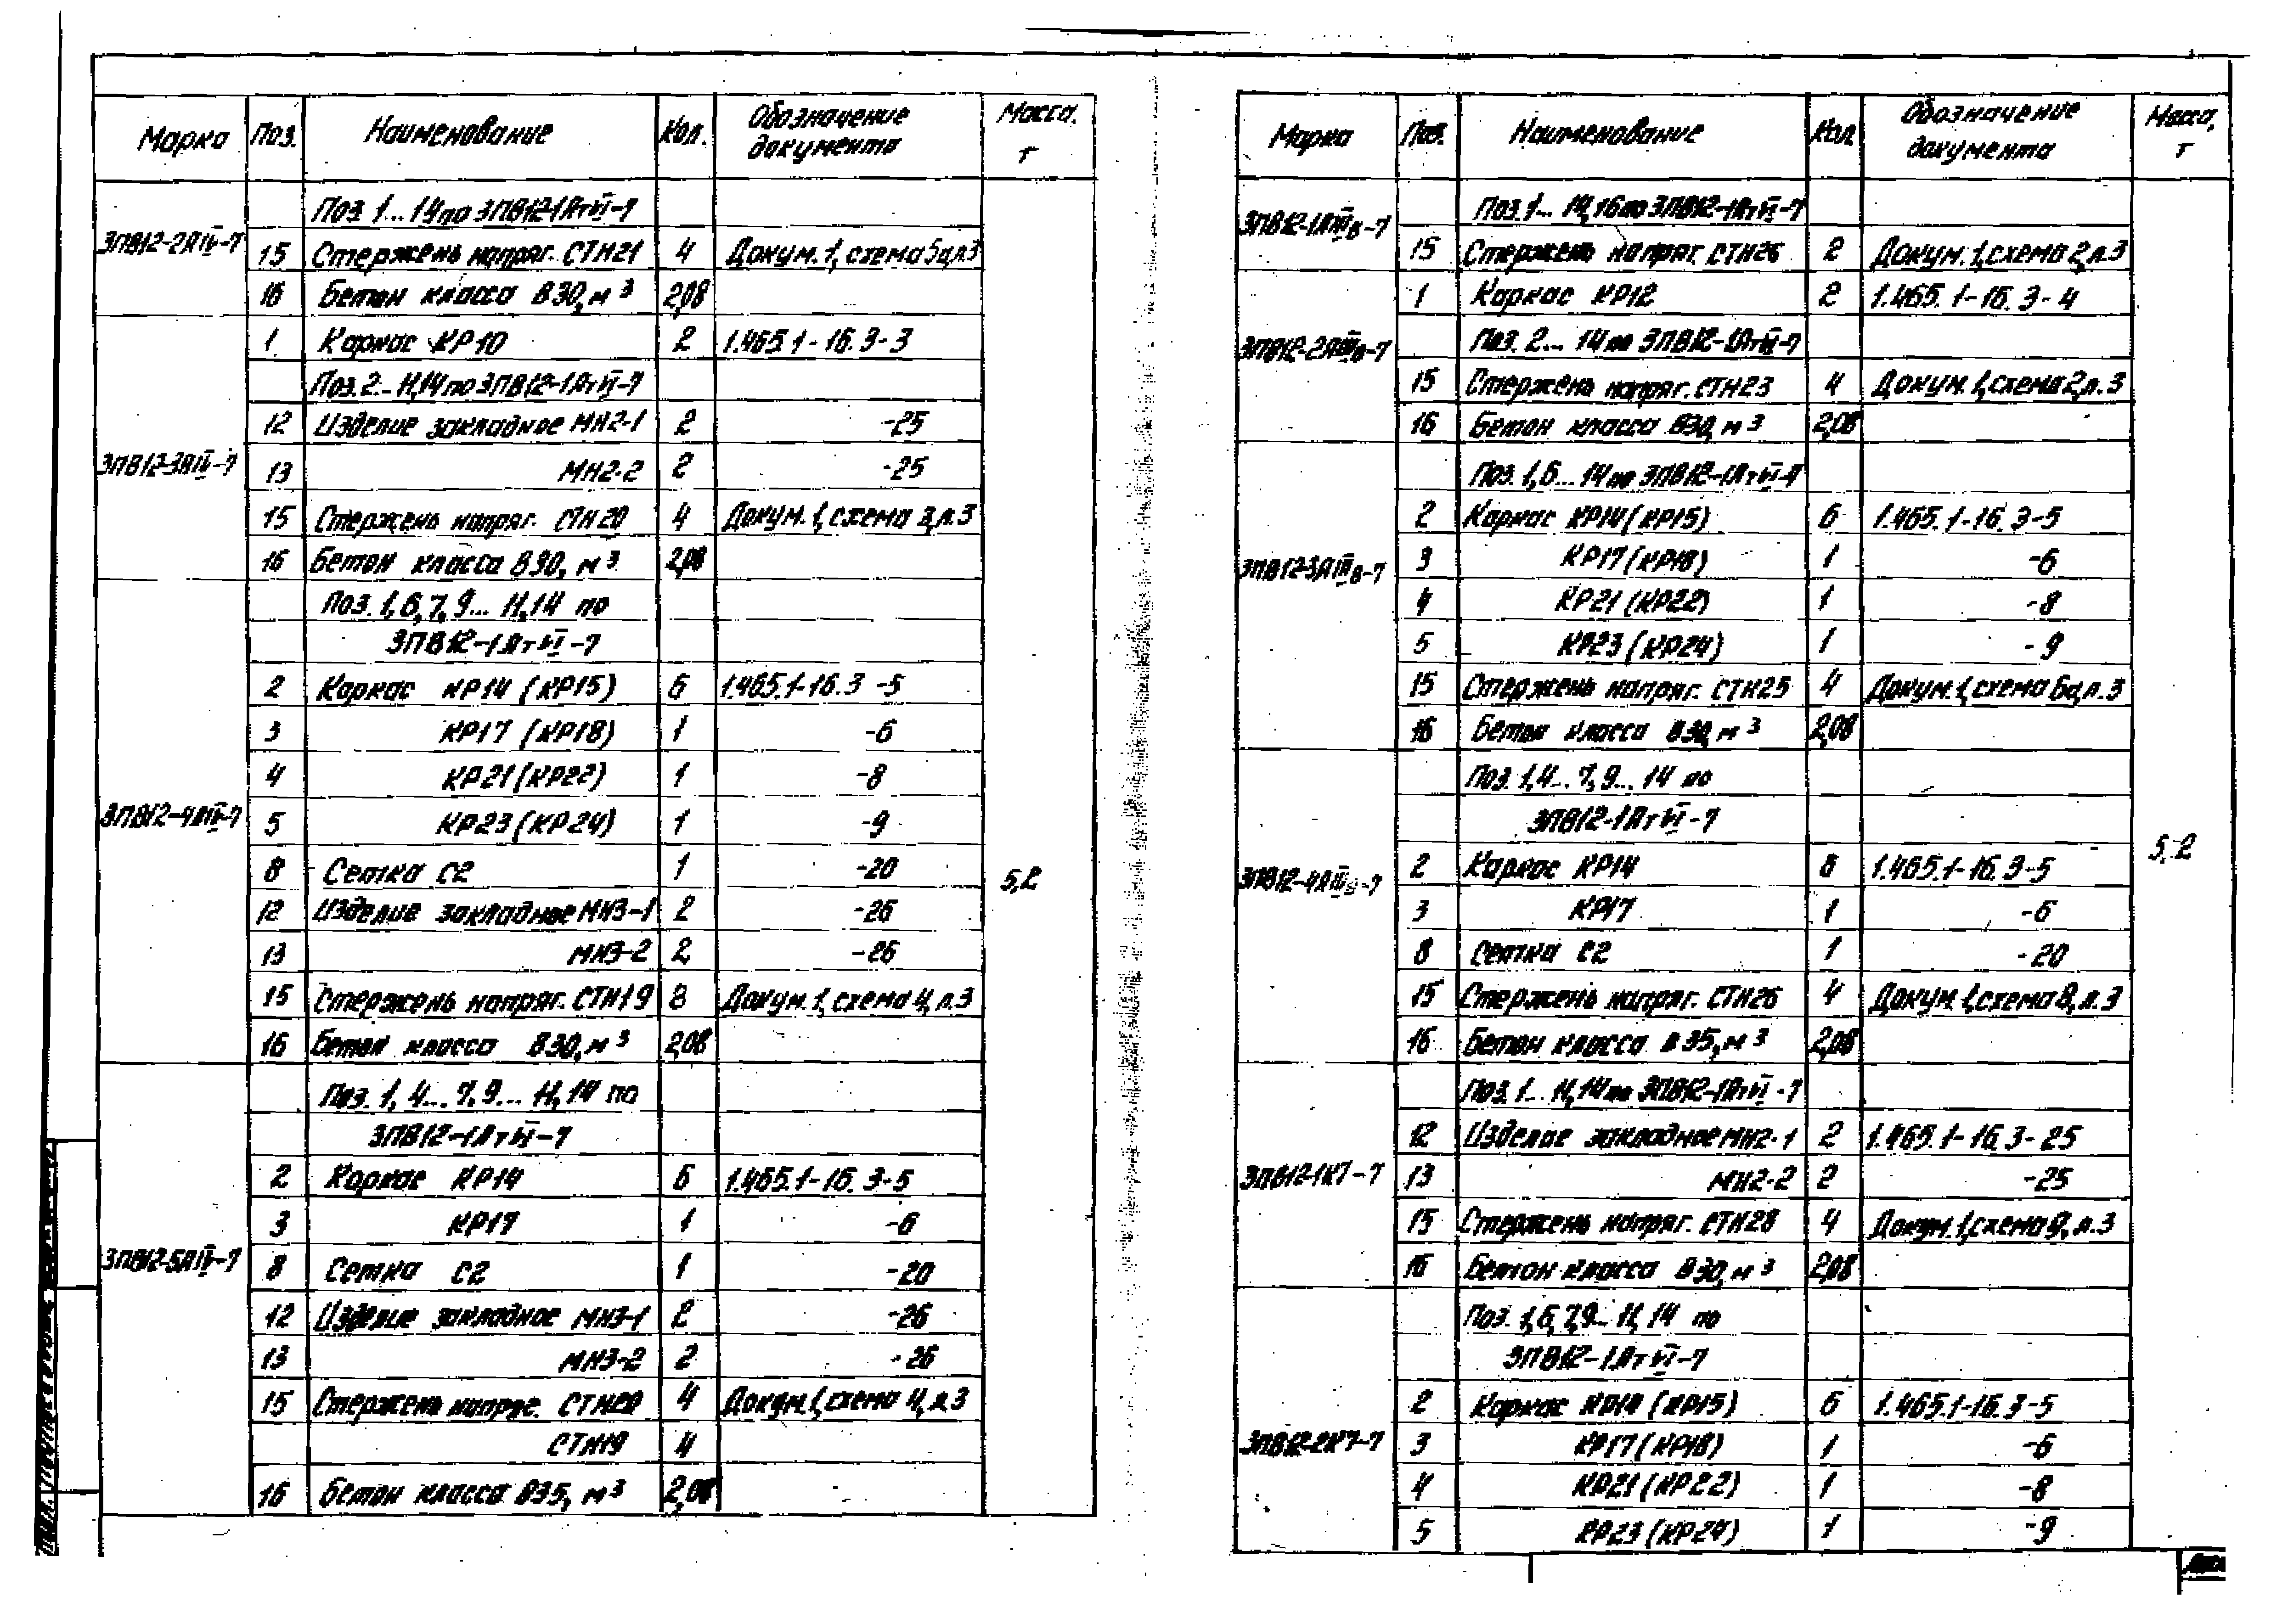 Марка Поз. Наименование Кол. Обозначение документа Масса, т
3ПВ12-2АIV-7
Поз. 1... 14 по 3ПВ12-1АтVI-7
15 Стержень напряг. СТН21 4 Докум. 1, схема 5а, л.3
16 Бетон класса В30, м³ 2,08
3ПВ12-3АIV-7
1 Каркас КР10 2 1.465.1-16.3-3
Поз. 2... 11,14 по 3ПВ12-1АтVI-7
12 Изделие закладное МН2-1 2 -25
13 МН2-2 2 -25
15 Стержень напряг. СТН20 4 Докум. 1, схема 3, л.3
16 Бетон класса В30, м³ 2,08
3ПВ12-4АIV-7
Поз. 1,6,7,9... 11,14 по
3ПВ12-1АтVI-7
2 Каркас КР14 (КР15) 6 1.465.1-16.3-5
3 КР17 (КР18) 1 -6
4 КР21 (КР22) 1 -8
5 КР23 (КР24) 1 -9
8 Сетка С2 1 -20
12 Изделие закладное МН3-1 2 -26
13 МН3-2 2 -26
15 Стержень напряг. СТН19 8 Докум. 1, схема 4, л.3
16 Бетон класса В30, м³ 2,08
5,2
3ПВ12-5АIV-7
Поз. 1, 4... 7, 9... 11,14 по
3ПВ12-1АтVI-7
2 Каркас КР14 6 1.465.1-16.3-5
3 КР17 1 -6
8 Сетка С2 1 -20
12 Изделие закладное МН3-1 2 -26
13 МН3-2 2 -26
15 Стержень напряг. СТН20 4 Докум. 1, схема 4, л.3
СТН19 4
16 Бетон класса В35, м³ 2,08
Марка Поз. Наименование Кол. Обозначение документа Масса, т
3ПВ12-1АIIIв-7
Поз. 1... 14,16 по 3ПВ12-1АтVI-7
15 Стержень напряг. СТН26 2 Докум. 1, схема 2, л.3
3ПВ12-2АIIIв-7
1 Каркас КР12 2 1.465.1-16.3-4
Поз. 2... 14 по 3ПВ12-1АтVI-7
15 Стержень напряг. СТН23 4 Докум. 1, схема 2, л.3
16 Бетон класса В30, м³ 2,08
3ПВ12-3АIIIв-7
Поз. 1,6... 14 по 3ПВ12-1АтVI-7
2 Каркас КР14 (КР15) 6 1.465.1-16.3-5
3 КР17 (КР18) 1 -6
4 КР21 (КР22) 1 -8
5 КР23 (КР24) 1 -9
15 Стержень напряг. СТН25 4 Докум. 1, схема 6а, л.3
16 Бетон класса В30, м³ 2,08
3ПВ12-4АIIIв-7
Поз. 1,4... 7, 9... 14 по
3ПВ12-1АтVI-7
2 Каркас КР14 6 1.465.1-16.3-5
3 КР17 1 -6
8 Сетка С2 1 -20
15 Стержень напряг. СТН26 4 Докум. 1, схема 8, л.3
16 Бетон класса В35, м³ 2,08
5,2
3ПВ12-1К7-7
Поз. 1... 11,14 по 3ПВ12-1АтVI-7
12 Изделие закладное МН2-1 2 1.465.1-16.3-25
13 МН2-2 2 -25
15 Стержень напряг. СТН28 4 Докум. 1, схема 9, л.3
16 Бетон класса В30, м³ 2,08
3ПВ12-2К7-7
Поз. 1,6,7,9... 11,14 по
3ПВ12-1АтVI-7
2 Каркас КР14 (КР15) 6 1.465.1-16.3-5
3 КР17 (КР18) 1 -6
4 КР21 (КР22) 1 -8
5 КР23 (КР24) 1 -9